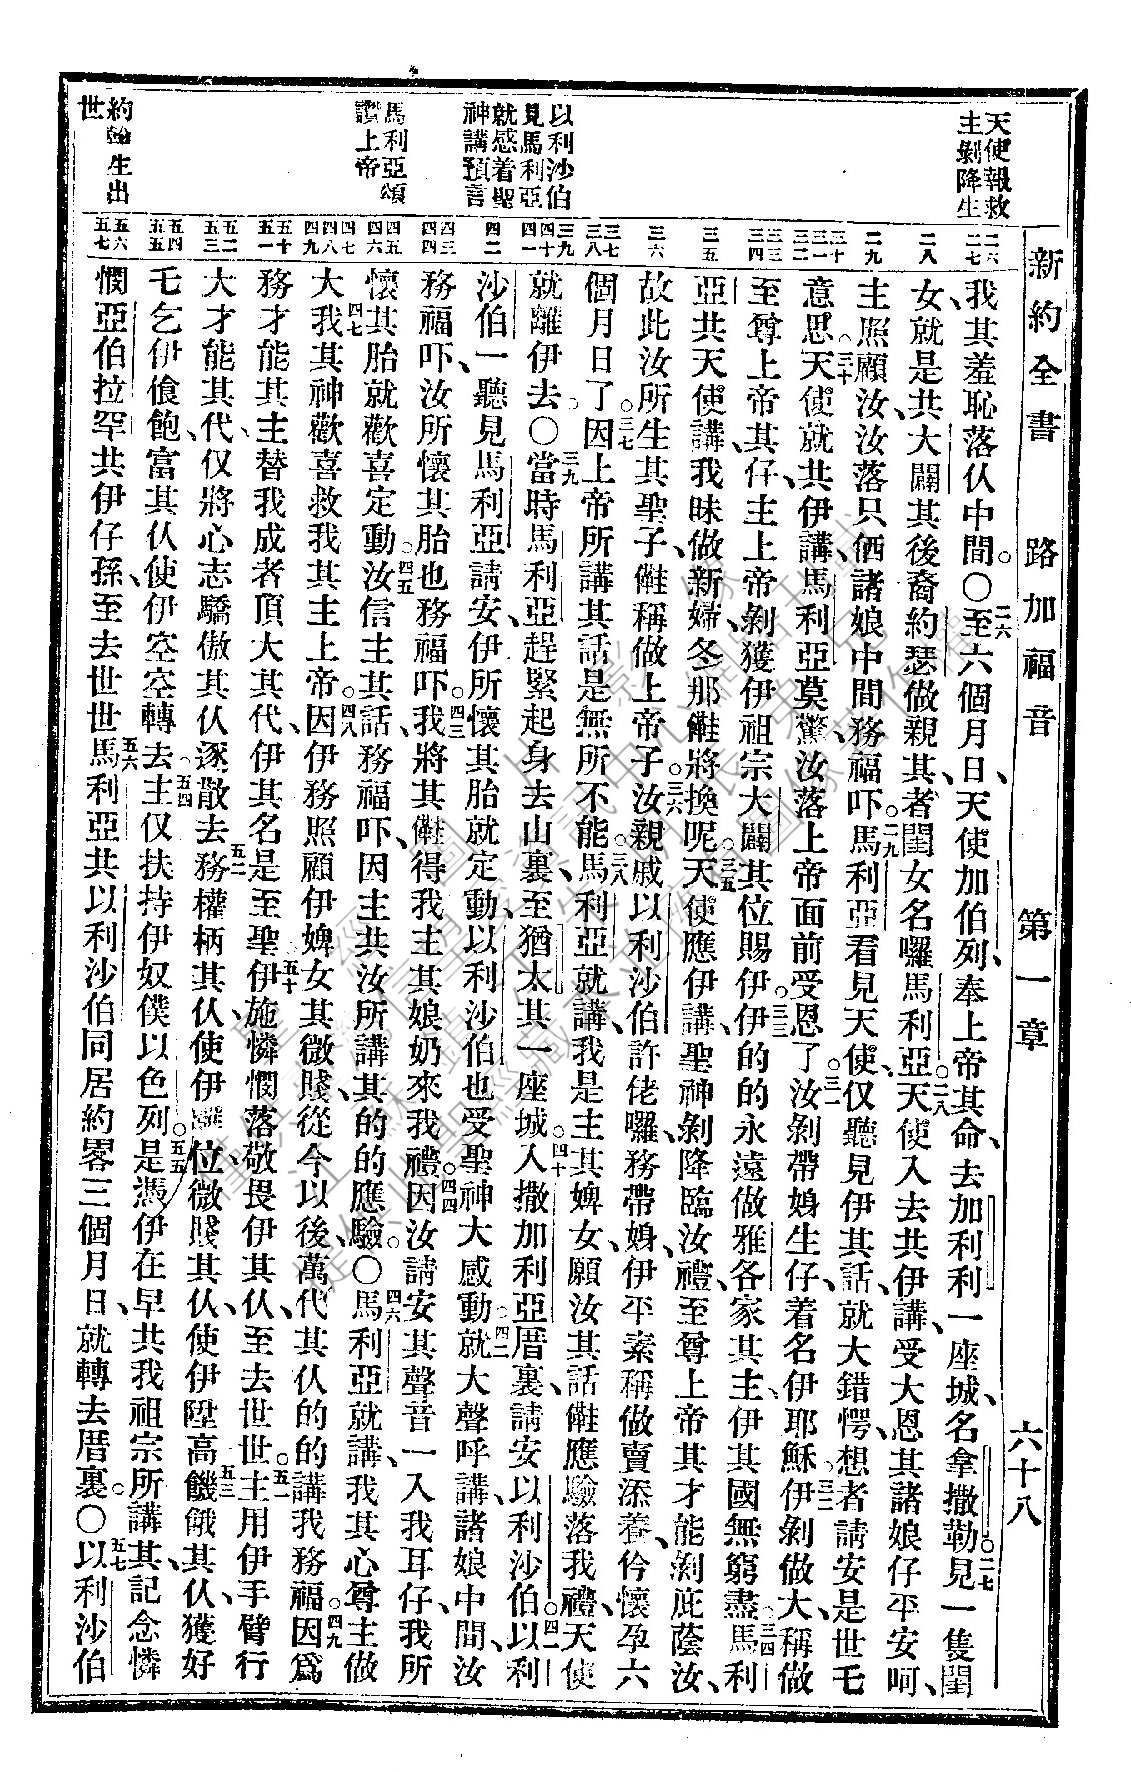 新約全書 路加福音 第一章 六十八
天使報救
主剝降生
以利沙伯
見馬利亞
就感着聖
神講預言
馬利亞頌
讚上帝
約翰生出
世
我其羞恥落仈中間。〇二六至六個月日、天使加伯列、奉上帝其命、去加利利一座城、名拿撒勒。二七見一隻閨
女、就是共大闢其後裔約瑟做親其、者閨女名囉馬利亞。二八天使入去共伊講、受大恩其諸娘仔平安呵、
主照顧汝、汝落只俩諸娘中間務福吓。二九馬利亞看見天使、仅聽見伊其話、就大錯愕、想者請安是世乇
意思。三十天使就共伊講、馬利亞莫驚、汝落上帝面前受恩了。三一汝剝帶娠生仔、着名伊耶穌。三二伊剝做大、稱做
至尊上帝其仔、主上帝剝獲伊祖宗大闢其位賜伊。三三伊的的永遠做雅各家其主、伊其國無窮盡。三四馬利
亞共天使講、我昧做新婦、冬那㑚將換呢。三五天使應伊講、聖神剝降臨汝禮、至尊上帝其才能剝庇蔭汝、
故此汝所生其聖子、㑚稱做上帝子。三六汝親戚以利沙伯許佬囉、務帶娠、伊平素稱做賣添養、仱懷孕六
個月日了。三七因上帝所講其話、是無所不能。三八馬利亞就講、我是主其婢女、願汝其話㑚應驗落我禮、天使
就離伊去。〇三九當時馬利亞趕緊起身去山裏、至猶太其一座城。四十入撒加利亞厝裏、請安以利沙伯。四一以利
沙伯一聽見馬利亞請安、伊所懷其胎就定動、以利沙伯也受聖神大感動。四二就大聲呼講、諸娘中間、汝
務福吓、汝所懷其胎也務福吓。四三我將其㑚得我主其娘奶來我禮。四四因汝請安其聲音一入我耳仔、我所
懷其胎就歡喜定動。四五汝信主其話、務福吓、因主共汝所講其的的應驗。〇四六馬利亞就講、我其心尊主做
大、四七我其神歡喜救我其主上帝。四八因伊務照顧伊婢女其微賤、從今以後、萬代其仈的的講我務福。四九因爲
務才能其主、替我成者頂大其代、伊其名是至聖、五十伊施憐憫落敬畏伊其仈、至去世世。五一主用伊手臂行
大才能其代、仅將心志驕傲其仈逐散去、五二務權柄其仈、使伊離位、微賤其仈、使伊陞高、五三饑餓其仈、獲好
乇乞伊飡飽、富其仈、使伊空空轉去、五四主仅扶持伊奴僕以色列、五五是憑伊在早共我祖宗所講其、記念憐
憫亞伯拉罕共伊仔孫、至去世世。五六馬利亞共以利沙伯同居約畧三個月日、就轉去厝裏。〇五七以利沙伯
二六
二七
二八
二九
三十
三一
三二
三三
三四
三五
三六
三七
三八
三九
四十
四一
四二
四三
四四
四五
四六
四七
四八
四九
五十
五一
五二
五三
五四
五五
五六
五七